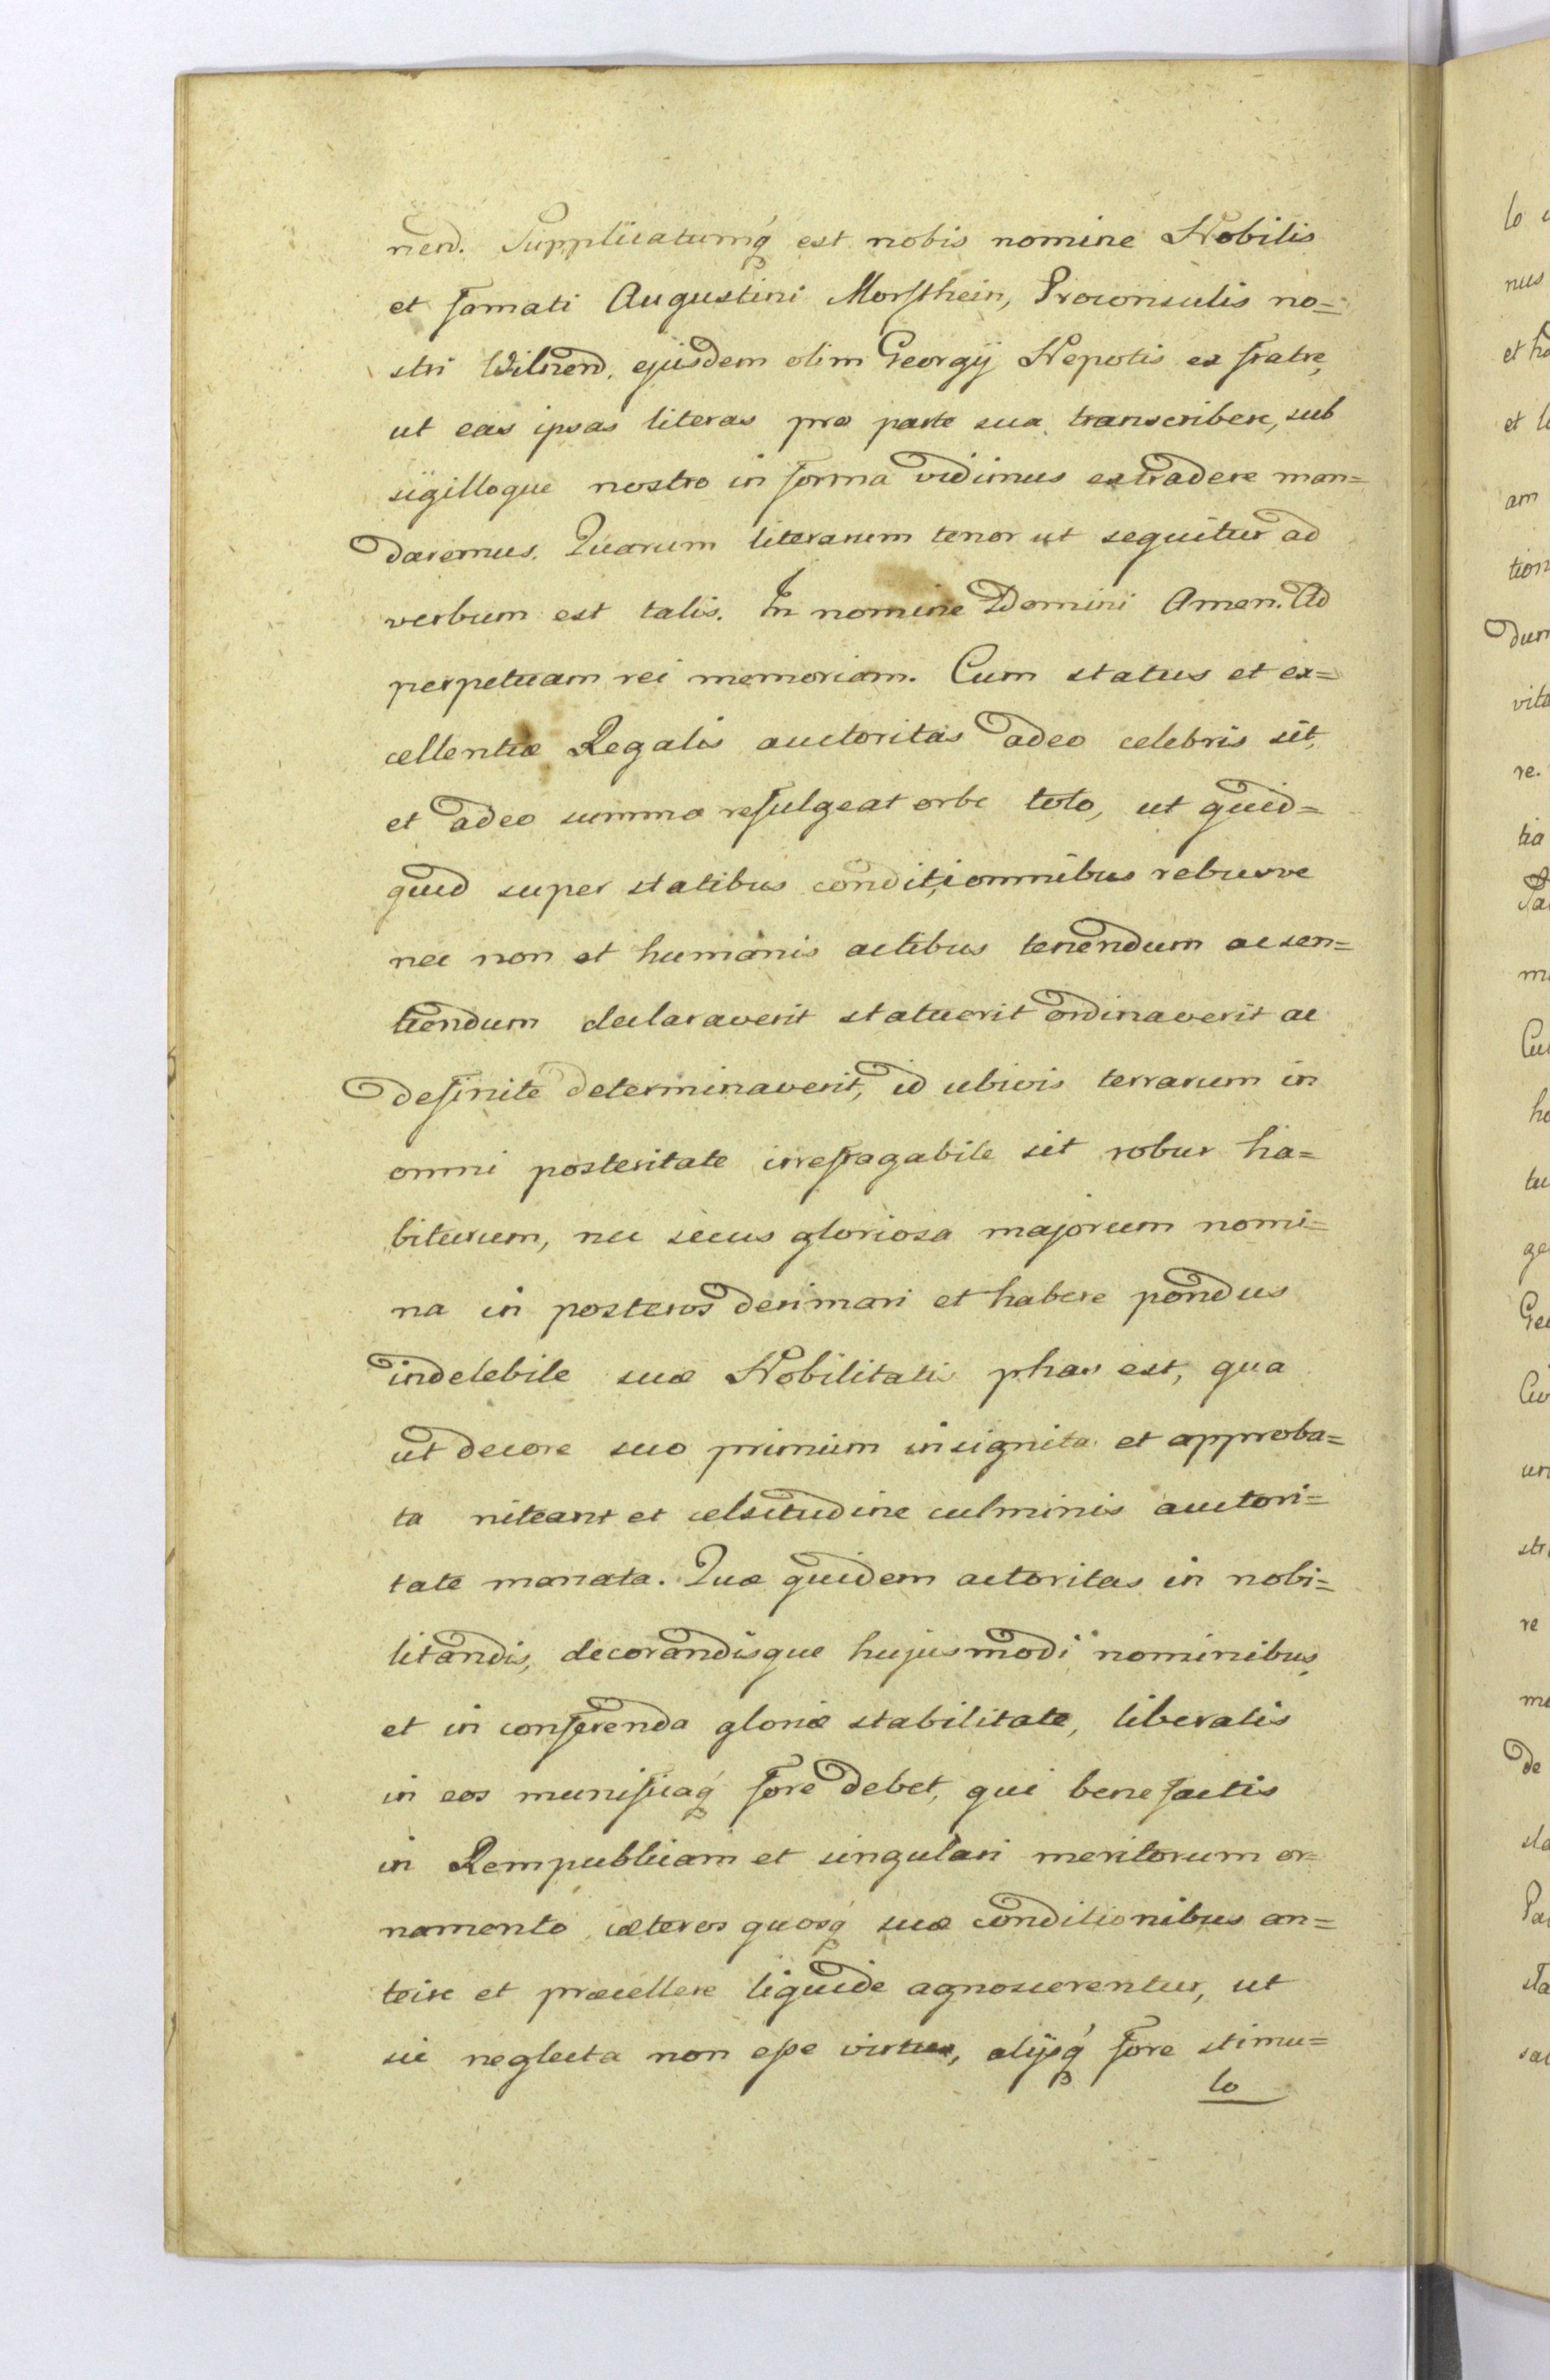 nen. Supplicatumq́ est nobis nomine Nobilis
et famati Augustini Morsthein, Proconsulis no=
stri Wilnen. ejusdem olim Georgij Nepotis ex fratre,
ut eas ipsas literas pro parte sua transcribere, sub
sigilloque nostro in forma vidimus extradere man=
daremus. Quarum literarum tenor ut sequitur ad
verbum est talis. In nomine Domini Amen. Ad
perpetuam rei memoriam. Cum status et ex=
cellentiæ Regalis auctoritas adeo celebris sit,
et adeo summa refulgeat orbe toto, ut quid=
quid super statibus conditiomnibus rebusve
nec non et humanis actibus tenendum ac sen=
tiendum declaraverit statuerit ordinaverit ac
definite determinaverit, id ubivis terrarum in
omni posteritate irrefragabile sit robur ha=
biturum, nec secus gloriosa majorum nomi=
na in posteros derimari et habere pondus
indelebile suæ Nobilitatis phas est, qua
ut decore suo primum insignita et approba=
ta niteant et celsitudine culminis auctori=
tate manata. Quæ quidem actoritas in nobi=
litandis, decorandisque hujusmodi nominibus,
et in conferenda gloriæ stabilitate, liberalis
in eos munificaq́ fore debet, qui benefactis
in Rempublicam et singulari meritorum or=
namento cæteros quosq́ suæ conditionibus an=
teire et præcellere liquide agnoscerentur, ut
sic neglecta non esse virtus, alijsq́ fore stimu=
lo